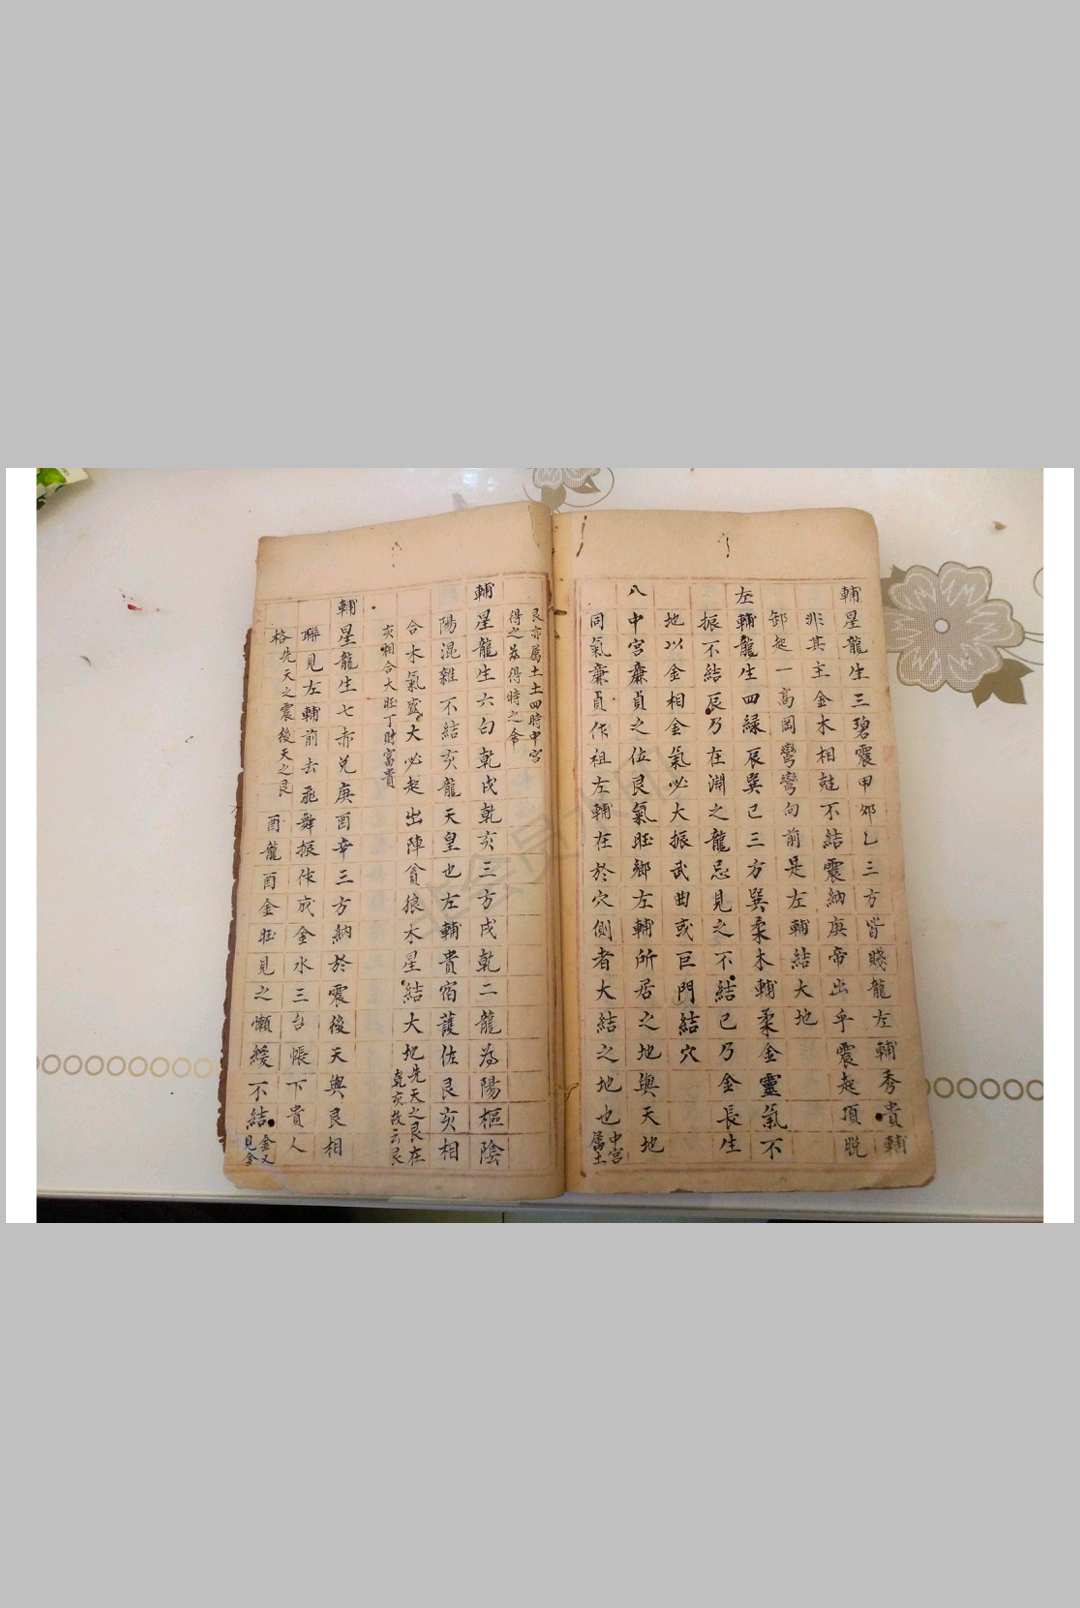 輔星龍生三碧震甲卯乙三方皆賤龍左輔秀貴輔
非其主金木相尅不結震納庚帝出乎震起頂脫
卸起一高岡彎彎向前是左輔結大地
左輔龍生四緑辰巽巳三方巽柔木輔柔金靈氣不
振不結辰乃在淵之龍忌見之不結巳乃金長生
地以金相金氣必大振武曲或巨門結穴
八中宮廉貞之位艮氣旺鄉左輔所居之地與天地
同氣廉貞作祖左輔在於穴側者大結之地也中宮屬土
艮亦屬土土四時中宮
得之為得時之令
輔星龍生六白乾戌乾亥三方戌乾二龍為陽樞陰
陽混雜不結亥龍天皇也左輔貴宿護佐艮亥相
合木氣盛大必起出陣貪狼木星結大地先天之艮在
乾亥故云艮
亥相合大旺丁財富貴
輔星龍生七赤兌庚酉辛三方納於震後天與艮相
聯見左輔前去飛舞振作成金水三台帳下貴人
格先天之震後天之艮酉龍酉金旺見之懶緩不結金又見金